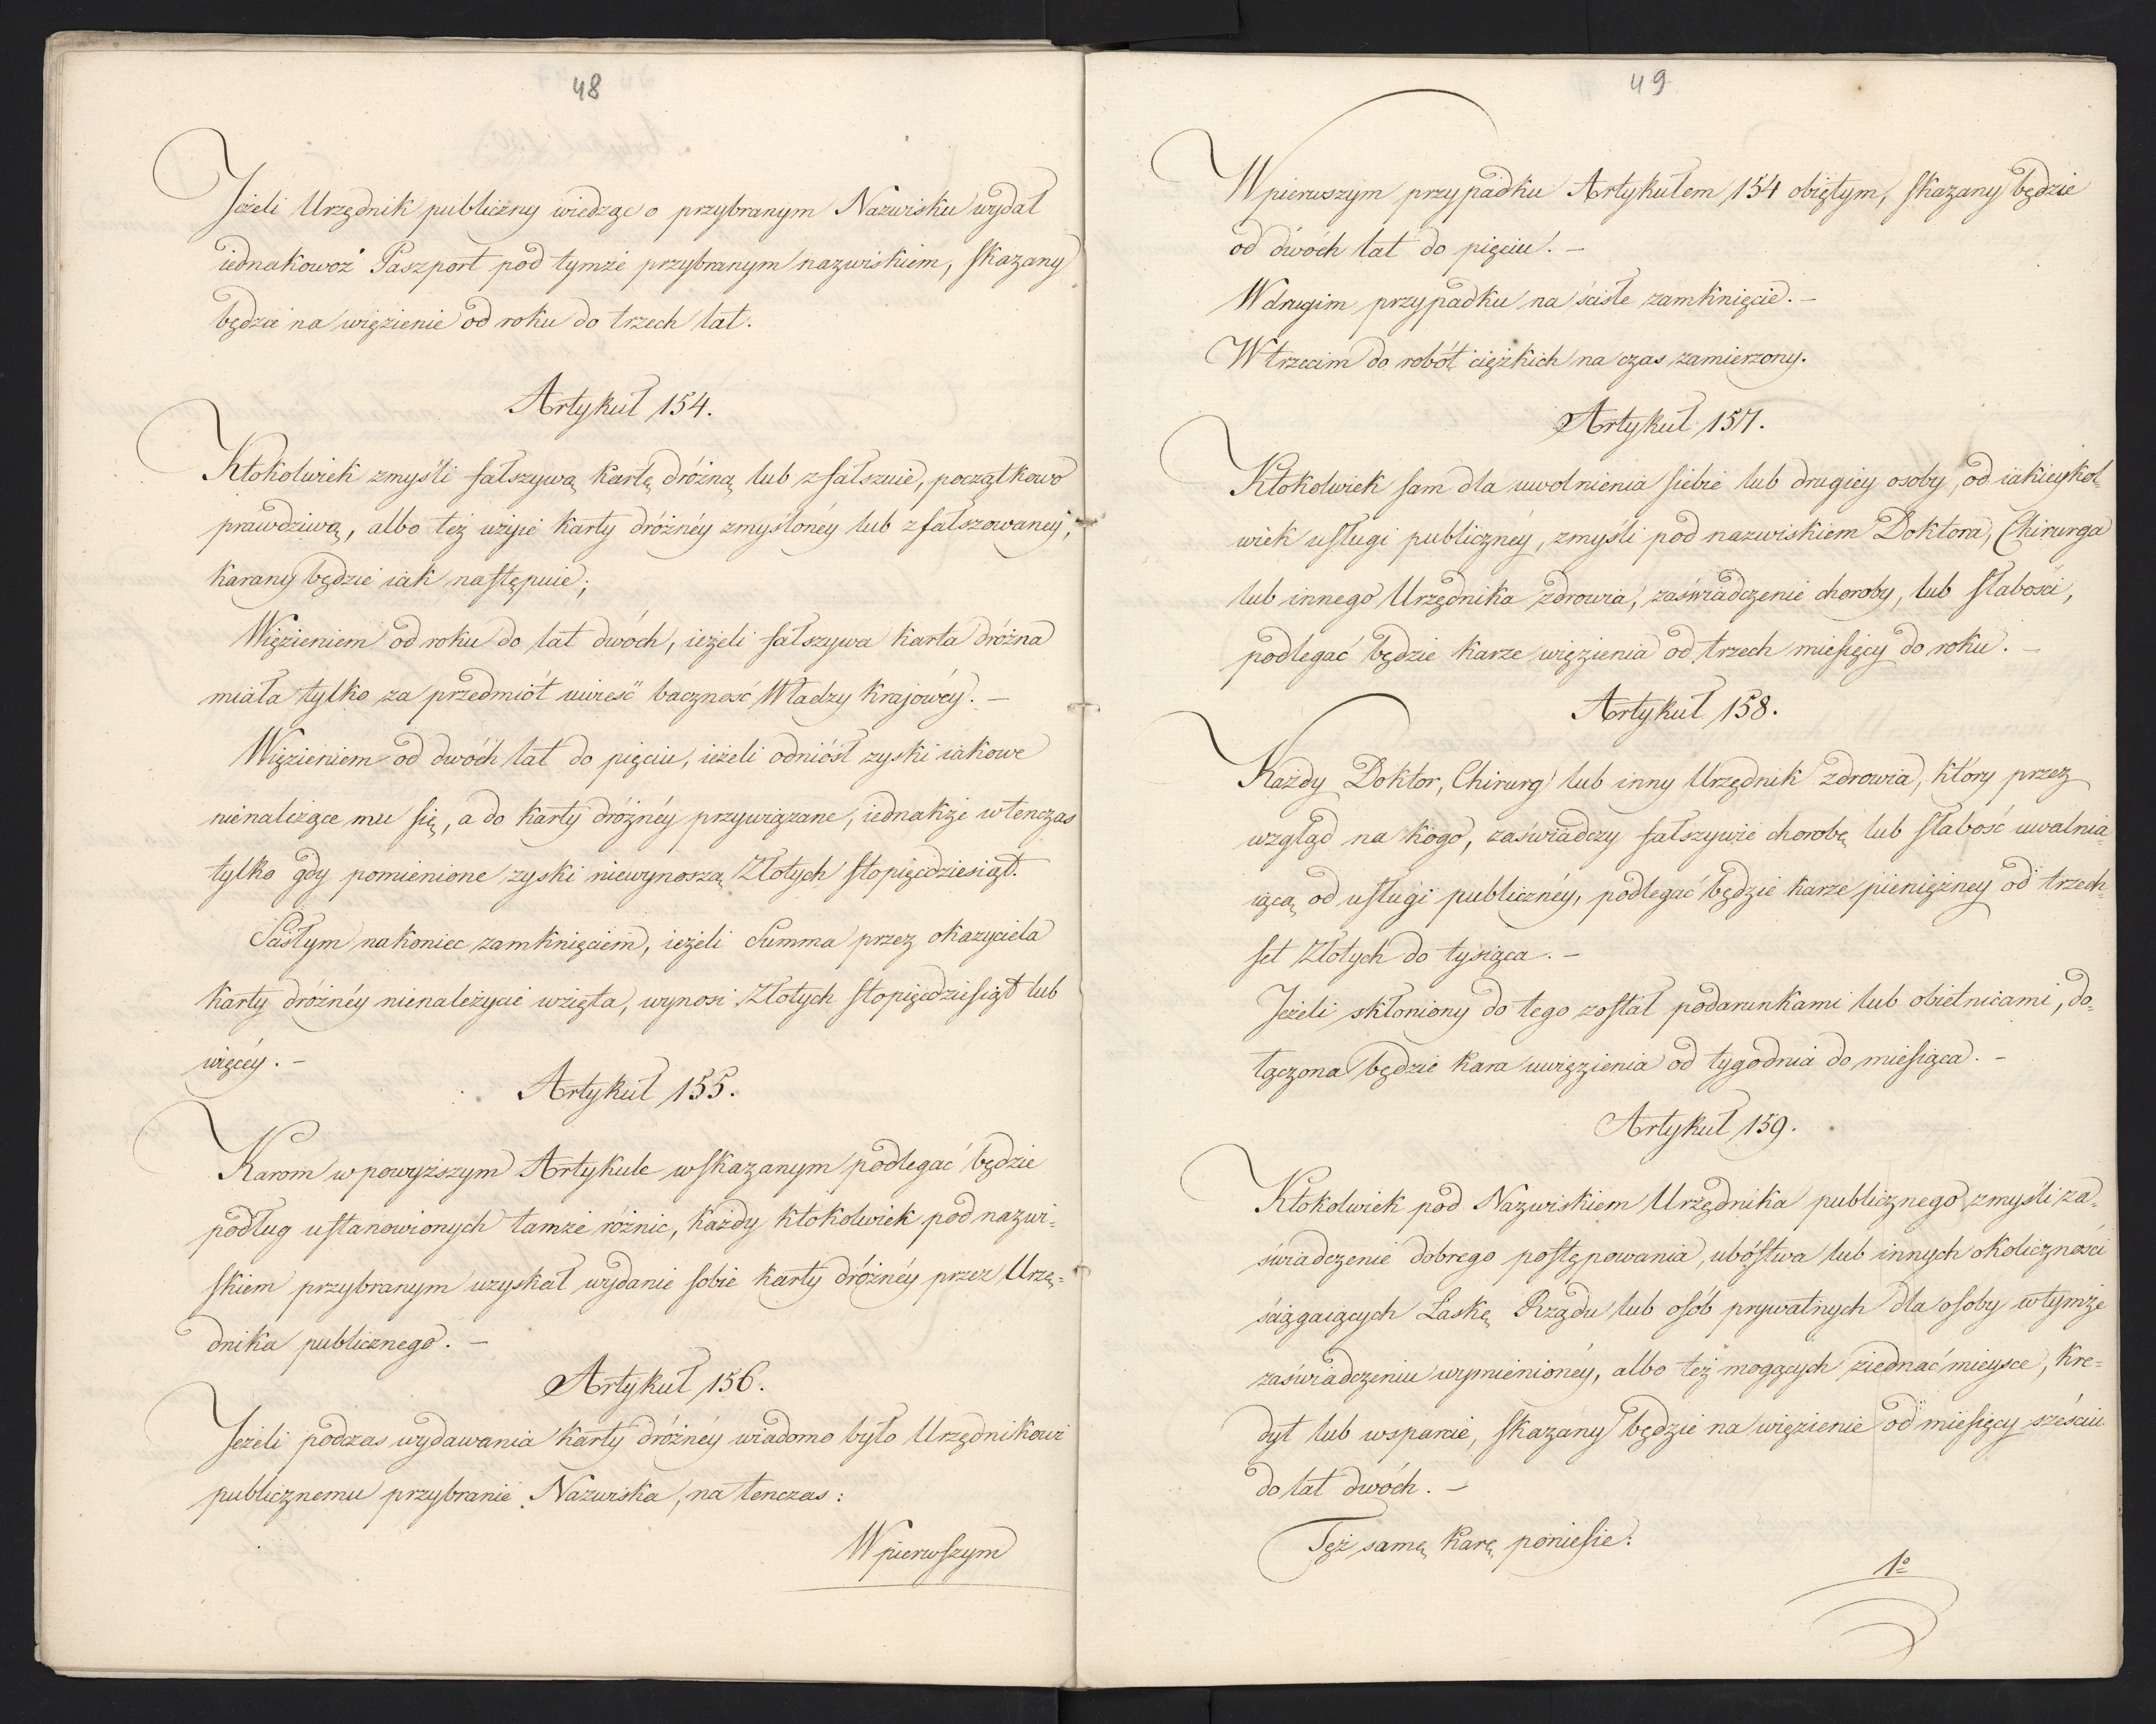 48
Jeżeli Urzędnik publiczny wiedząc o przybranym Nazwisku wydał
iednakowoż Paszport pod tymże przybranym nazwiskiem, skazany
będzie na więzienie od roku do trzech lat.
Artykuł 154.
Ktokolwiek zmyśli fałszywą kartę dróżną lub zfałszuie, początkowo
prawdziwą, albo też użyie karty dróżnéy zmyślonéy lub zfałszowaney,
karany będzie iak następuie;
Więzieniem od roku do lat dwóch, ieżeli fałszywa karta dróżna
miała tylko za przedmiót uwieść baczność Władzy Krajowéy. —
Więzieniem od dwóch lat do pięciu, ieżeli odniósł zyski iakowe
nienależące mu się, a do karty dróżnéy przywiązane, iednakże wtenczas
tylko gdy pomienione zyski niewynoszą Złotych stopięćdziesiąt.
Scisłym nakoniec zamknięciem, ieżeli Summa przez okaziciela
karty dróżnéy nienależycie wzięta, wynosi Złotych stopięćdziesiąt lub
więcéy. —
Artykuł 155.
Karom w powyższym Artykule wskazanym podlegać będzie
podług ustanowionych tamże różnic, każdy ktokolwiek pod nazwi-
skiem przybranym uzyskał wydanie sobie karty dróżnéy przez Urzę-
dnika publicznego. —
Artykuł 156.
Jeżeli podczas wydawania karty dróżnéy wiadomo było Urzędnikowi
publicznemu przybranie Nazwiska, na tenczas:
W pierwszym
49
W pierwszym przypadku Artykułem 154 obiętym, skazany będzie
od dwóch lat do pięciu. —
W drugim przypadku na ścisłe zamknięcie. —
W trzecim do robót ciężkich na czas zamierzony.
Artykuł 157.
Ktokolwiek sam dla uwolnienia siebie lub drugiéy osoby, od iakieykol-
wiek usługi publicznéy, zmyśli pod nazwiskiem Doktora, Chirurga
lub innego Urzędnika zdrowia, zaświadczenie choroby, lub słabości,
podlegać będzie karze więzienia od trzech miesięcy do roku. —
Artykuł 158.
Każdy Doktor, Chirurg lub inny Urzędnik zdrowia, który przez
wzgląd na kogo, zaświadczy fałszywie chorobę lub słabość uwalnia-
iącą od usługi publicznéy, podlegać będzie karze pieniężney od trzech-
set Złotych do tysiąca. —
Jeżeli skłoniony do tego został podarunkami lub obietnicami, do-
łączona będzie kara uwięzienia od tygodnia do miesiąca. —
Artykuł 159.
Ktokolwiek pod Nazwiskiem Urzędnika publicznego zmyśli za-
świadczenie dobrego postępowania, ubóstwa lub innych okoliczności
ściągaiących Łaskę Rządu lub osób prywatnych dla osoby w tymże
zaświadczeniu wymienionéy, albo też mogących ziednać mieysce, kre-
dyt lub wsparcie, skazany będzie na więzienie od miesięcy sześciu
do lat dwóch. —
Tęż samę karę poniesie:
1º